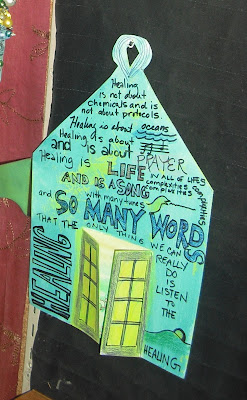 Healing
is not about
chemicals and is
not about protocols.
Healing is about oceans
Healing is about
and is about PRAYER
Healing is LIFE
IN ALL OF LIFE'S
complexities
complicities
AND IS A SONG
with many tunes
and SO MANY WORDS
THAT THE ONLY THING WE CAN
REALLY
DO
IS
LISTEN
TO
THE
HEALING
HEALING